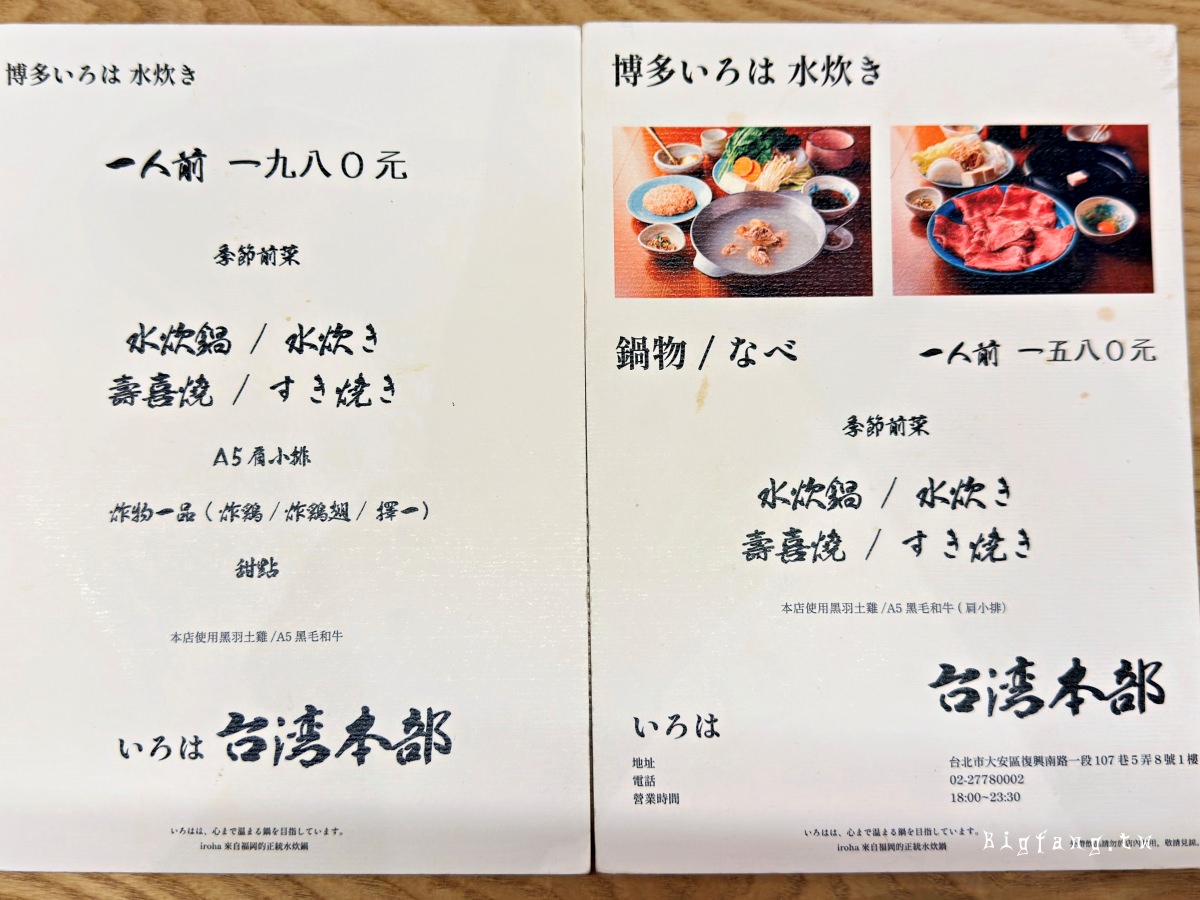 博多いろは 水炊き
一人前 一九八〇元
季節前菜
水炊鍋 / 水炊き
壽喜燒 / すき焼き
A5 肩小排
炸物一品 ( 炸鷄 / 炸鷄翅 / 擇一 )
甜點
本店使用黑羽土雞 /A5 黑毛和牛
いろは 台湾本部
いろはは、心まで温まる鍋を目指しています。
iroha 來自福岡的正統水炊鍋
博多いろは 水炊き
鍋物 / なべ 一人前 一五八〇元
季節前菜
水炊鍋 / 水炊き
壽喜燒 / すき焼き
本店使用黑羽土雞 /A5 黑毛和牛 ( 肩小排)
いろは 台湾本部
地址 台北市大安區復興南路一段 107 巷 5 弄 8 號 1 樓
電話 02-27780002
營業時間 18:00~23:30
いろはは、心まで温まる鍋を目指しています。
iroha 來自福岡的正統水炊鍋
Bigfang.tw